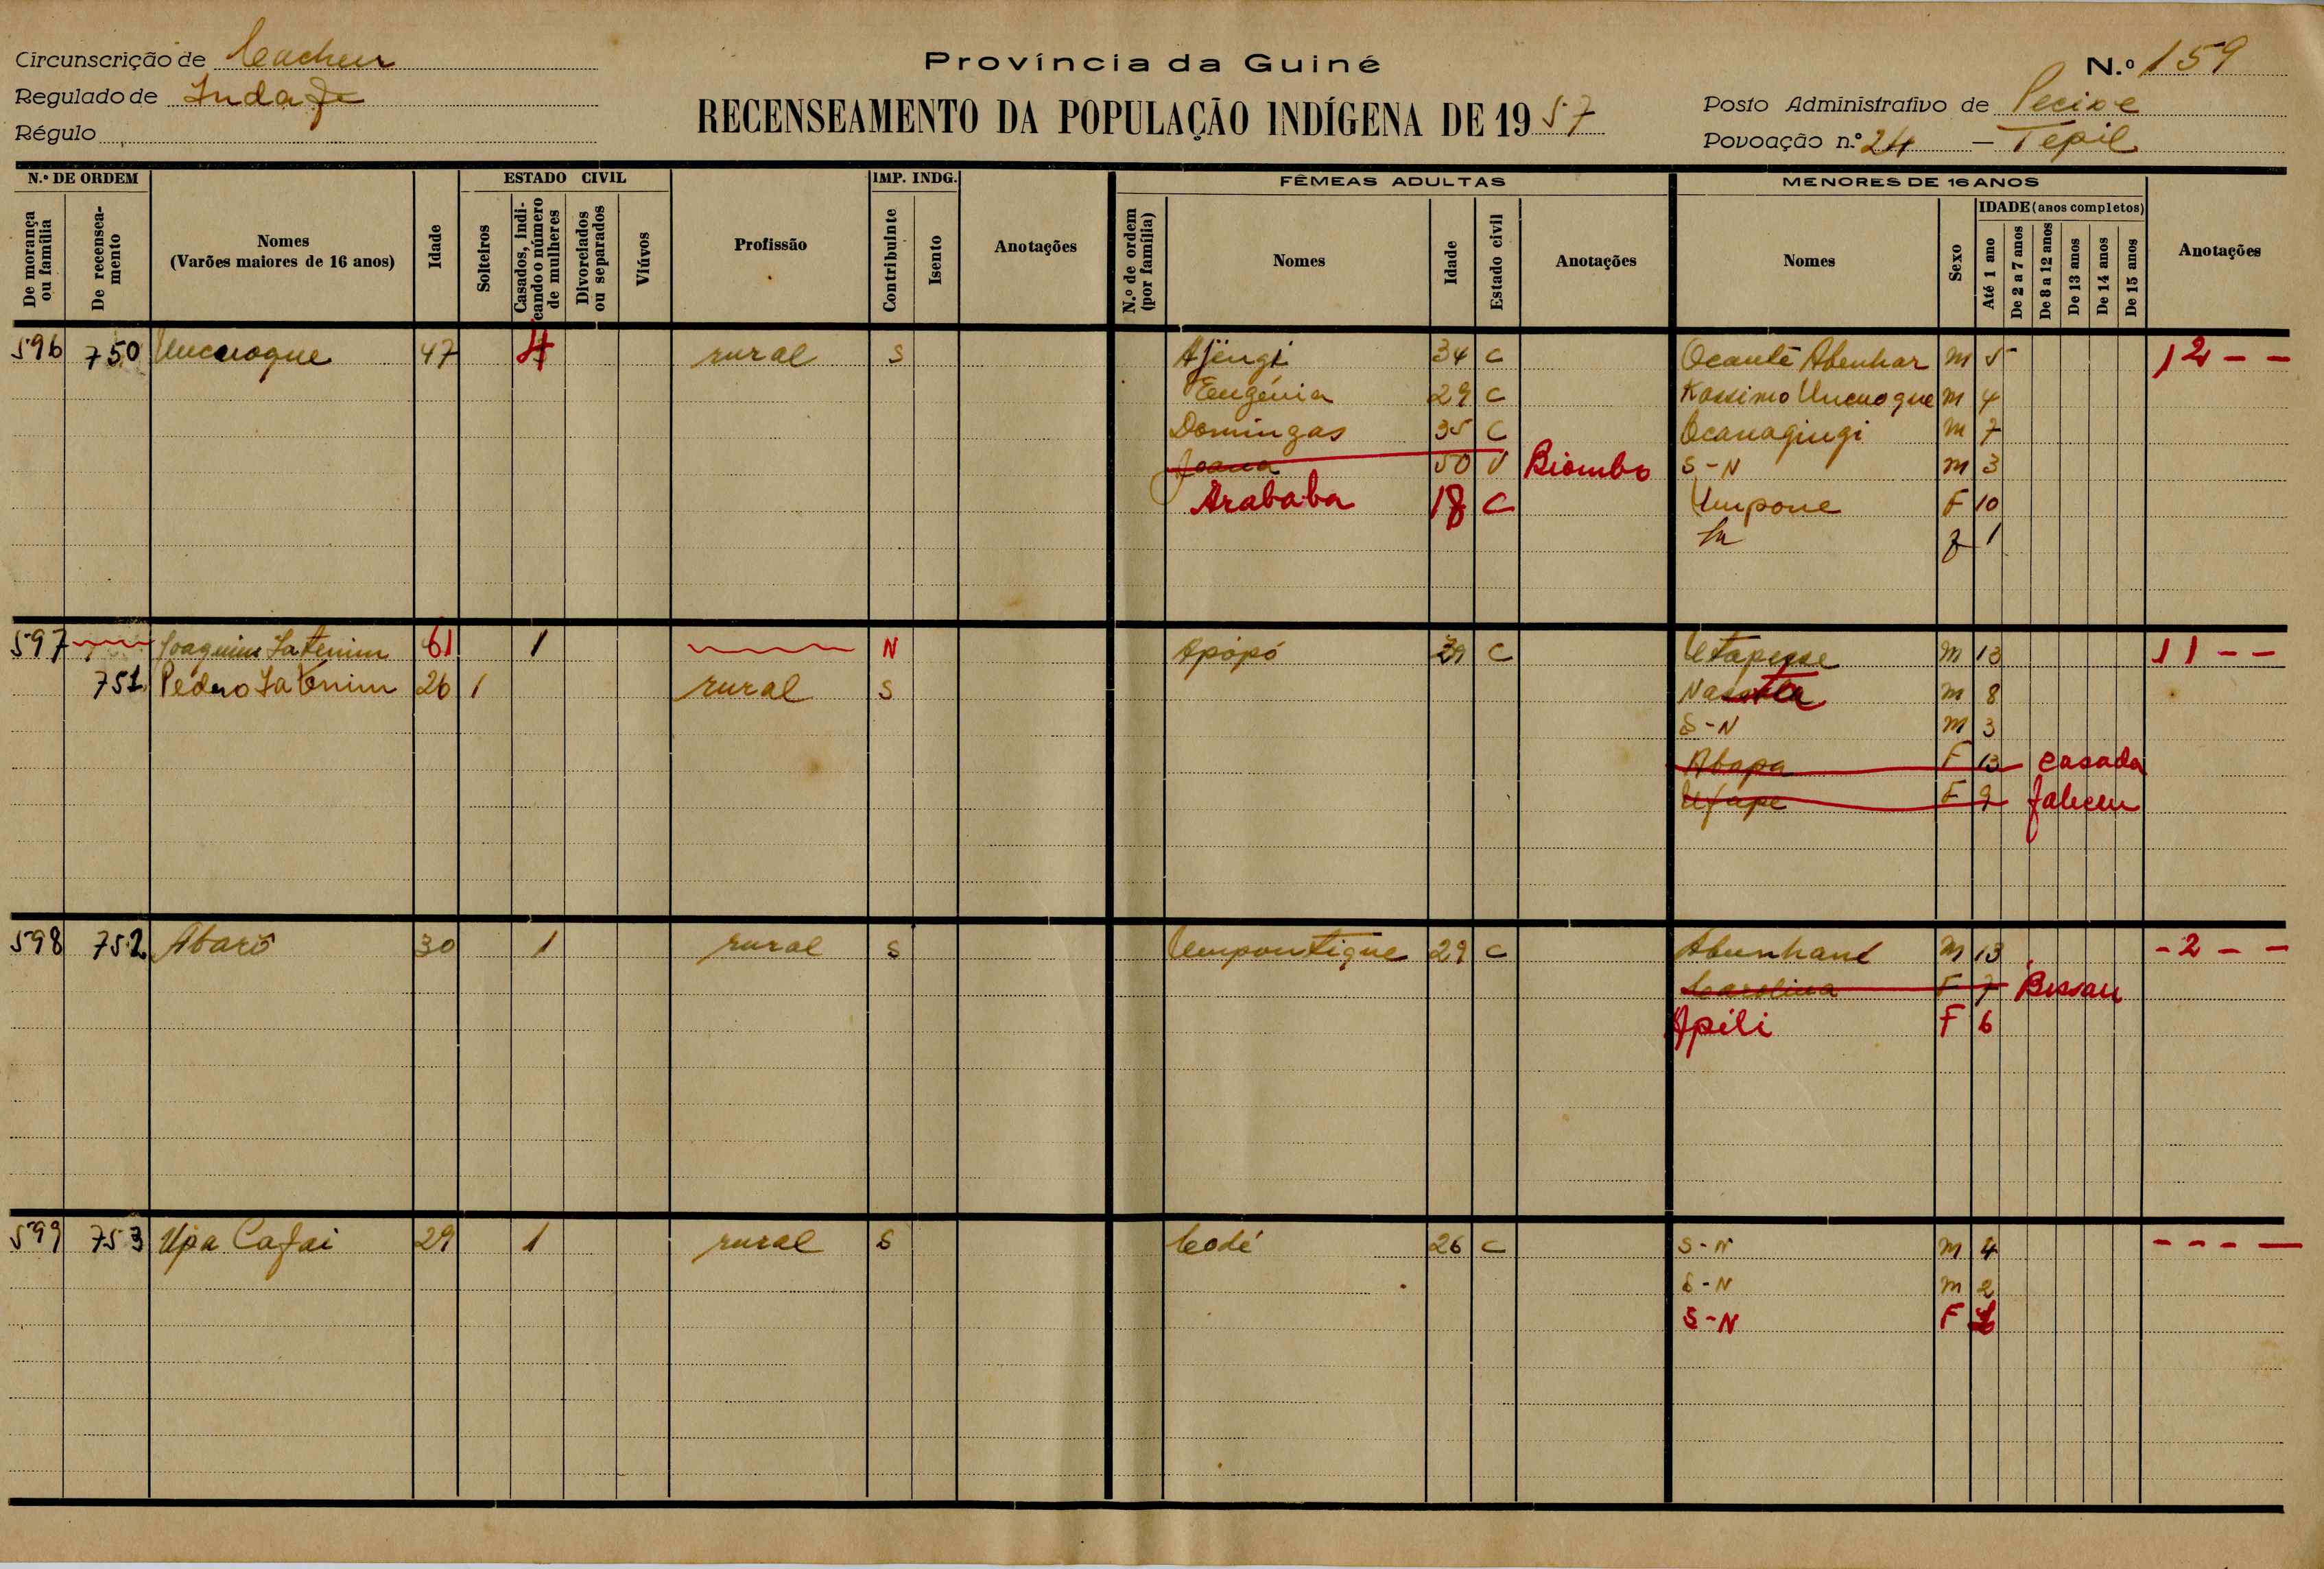 Circunscrição de Cacheu
Regulado de
Régulo
Província da Guiné
RECENSEAMENTO DA POPULAÇÃO INDÍGENA DE 1957
N.º 159
Posto Administrativo de Pecixe
Povoação n.º 24 — Tepil
N.º DE ORDEM
De morança ou família
De recenseamento
Nomes
(Varões maiores de 16 anos)
Idade
ESTADO CIVIL
Solteiros
Casados, indicando o número de mulheres
Divorciados ou separados
Viúvos
Profissão
IMP. INDG.
Contribuinte
Isento
Anotações
FÊMEAS ADULTAS
N.º de ordem (por família)
Nomes
Idade
Estado civil
Anotações
MENORES DE 16 ANOS
Nomes
Sexo
IDADE (anos completos)
Até 1 ano
De 2 a 7 anos
De 8 a 12 anos
De 13 anos
De 14 anos
De 15 anos
Anotações
596 750 Uncuoque 47 4 rural S Ajingi 34 C Ocante Abenhar M 5 12 - -
Eugénia 29 C Kassimo Uncuoque M 4
Domingas 35 C Ocanagingi M 7
Joana 50 V Biombo S-N M 3
Arababa 18 C Umpone F 10
1
597 Joaquim Satenim 61 1 N Apópó C Utapesse M 13 11 - -
751 Pedro Satenim 26 1 rural S M 8
S-N M 3
Abapa F 13 casada
Ufape F 9 faleceu
598 752 Abarô 30 1 rural S Umpontique 29 C Abunhané M 13 - 2 - -
Carolina F 7 Bissau
Apili F 6
599 753 Upa Cafai 29 1 rural S Codé 26 C S-N M 4 - - - -
S-N M 2
S-N F